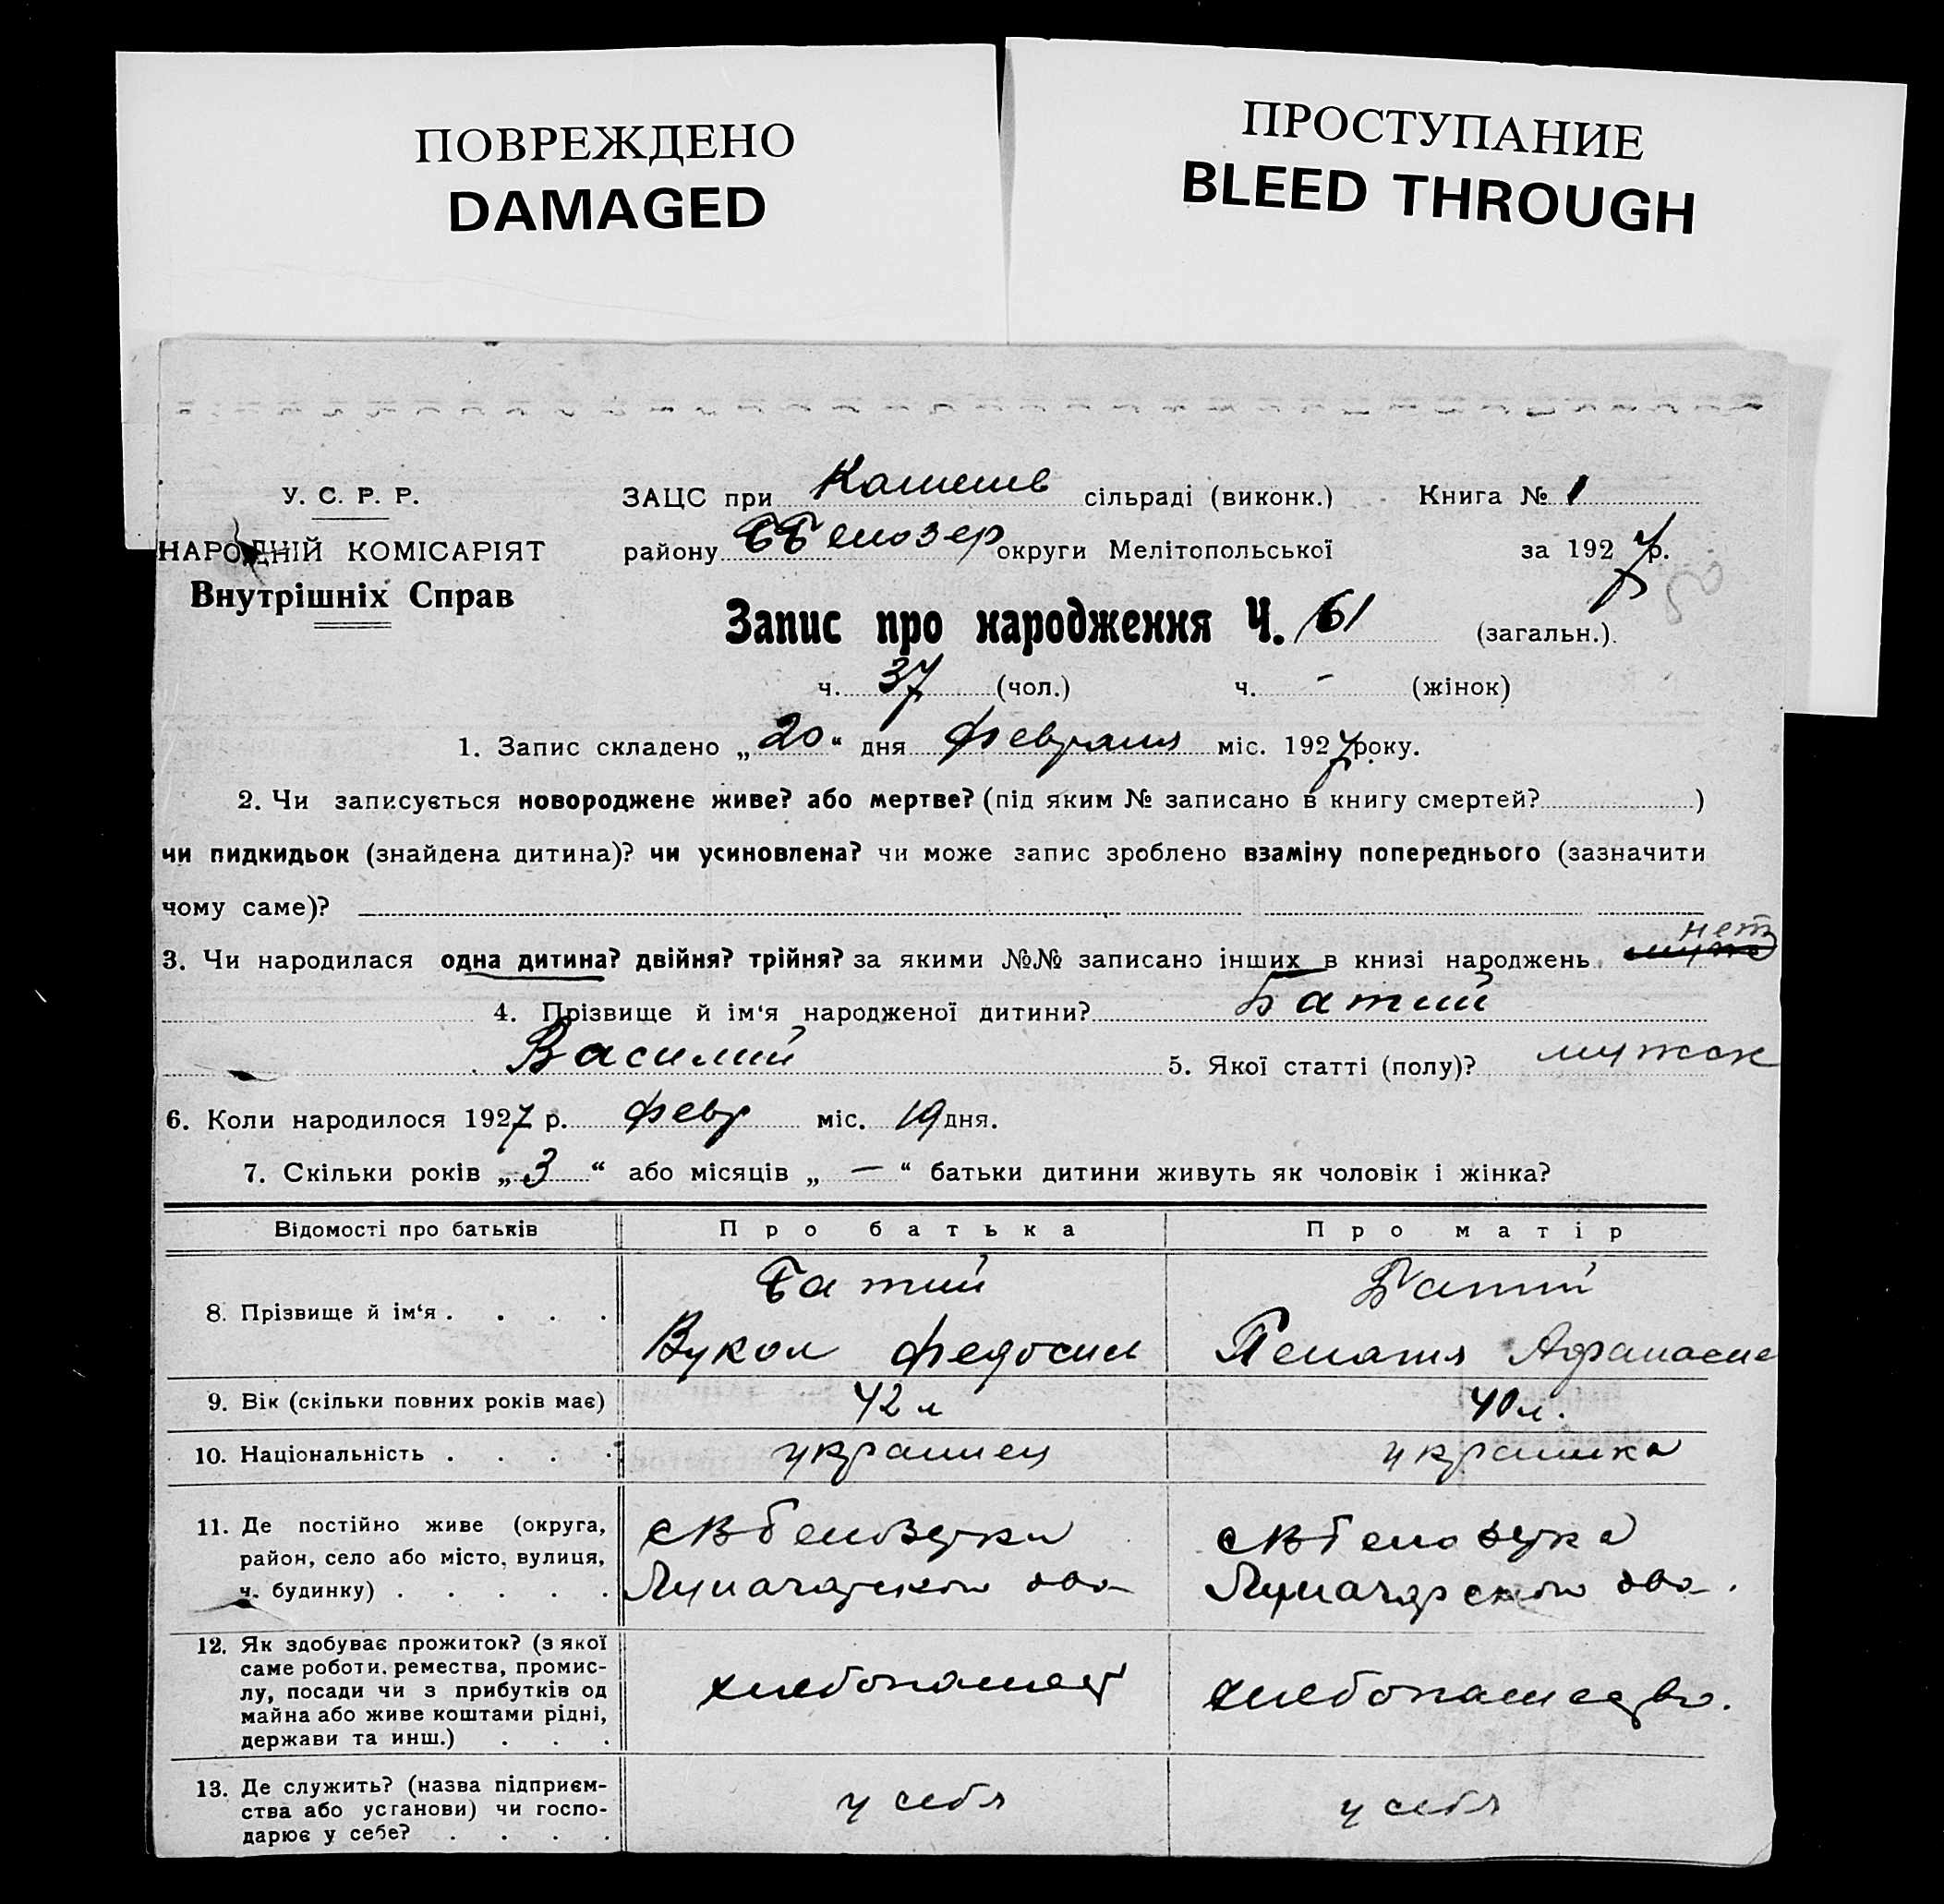 ПОВРЕЖДЕНО
DAMAGED
ПРОСТУПАНИЕ
BLEED THROUGH
У. С. Р. Р.
НАРОДНІЙ КОМІСАРІЯТ
Внутрішніх Справ
ЗАЦС при сільраді (виконк.) Книга № 1
району Б Белозер округи Мелітопольської за 1927 р.
Запис про народження Ч. 61 (загальн.).
ч. 37 (чол.) ч. - (жінок)
1. Запис складено „20“ дня февраля міс. 1927 року.
2. Чи записується новороджене живе? або мертве? (під яким № записано в книгу смертей? )
чи пидкидьок (знайдена дитина)? чи усиновлена? чи може запис зроблено взаміну попереднього (зазначити
чому саме)?
нет
3. Чи народилася одна дитина? двійня? трійня? за якими №№ записано інших в книзі народжень
4. Прізвище й ім'я народженої дитини? Батий
Василий 5. Якої статті (полу)? мужск
6. Коли народилося 1927 р. февр міс. 19 дня.
7. Скільки років „3“ або місяців „—“ батьки дитини живуть як чоловік і жінка?
Відомості про батьків Про батька Про матір
8. Прізвище й ім'я . . . . Батий Батий
Вукол Федосиев Пелагия Афанасие
9. Вік (скільки повних років має) 42 л 40 л.
10. Національність . . . . украинец украинка
11. Де постійно живе (округа,
район, село або місто, вулиця,
ч. будинку) . . . . .
с В Белозерка с В Белозерка
Луначарского Луначарского
12. Як здобуває прожиток? (з якої
саме роботи, ремества, промис-
лу, посади чи з прибутків од
майна або живе коштами рідні,
держави та инш.) . . .
хлебопашест хлебопашество.
13. Де служить? (назва підприєм-
ства або установи) чи госпо-
дарює у себе? . . . .
у себя у себя